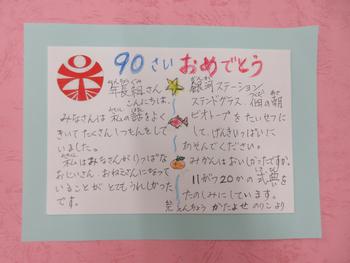 90さいおめでとう
年長組さん
こんにちは。
みなさんは私の話をよく
きいてたくさんしつもんをして
いました。
私はみなさんがりっぱな
おにいさん おねえさんになって
いることが とてもうれしかった
です。
銀河ステーション
ステンドグラス 佃の朝
ビオトープを たいせつに
して、げんきいっぱいに
あそんでください。
みかんはおいしかったですか。
11がつ20かの 式典を
たのしみにしています。
えんちょう かたよせのりこより